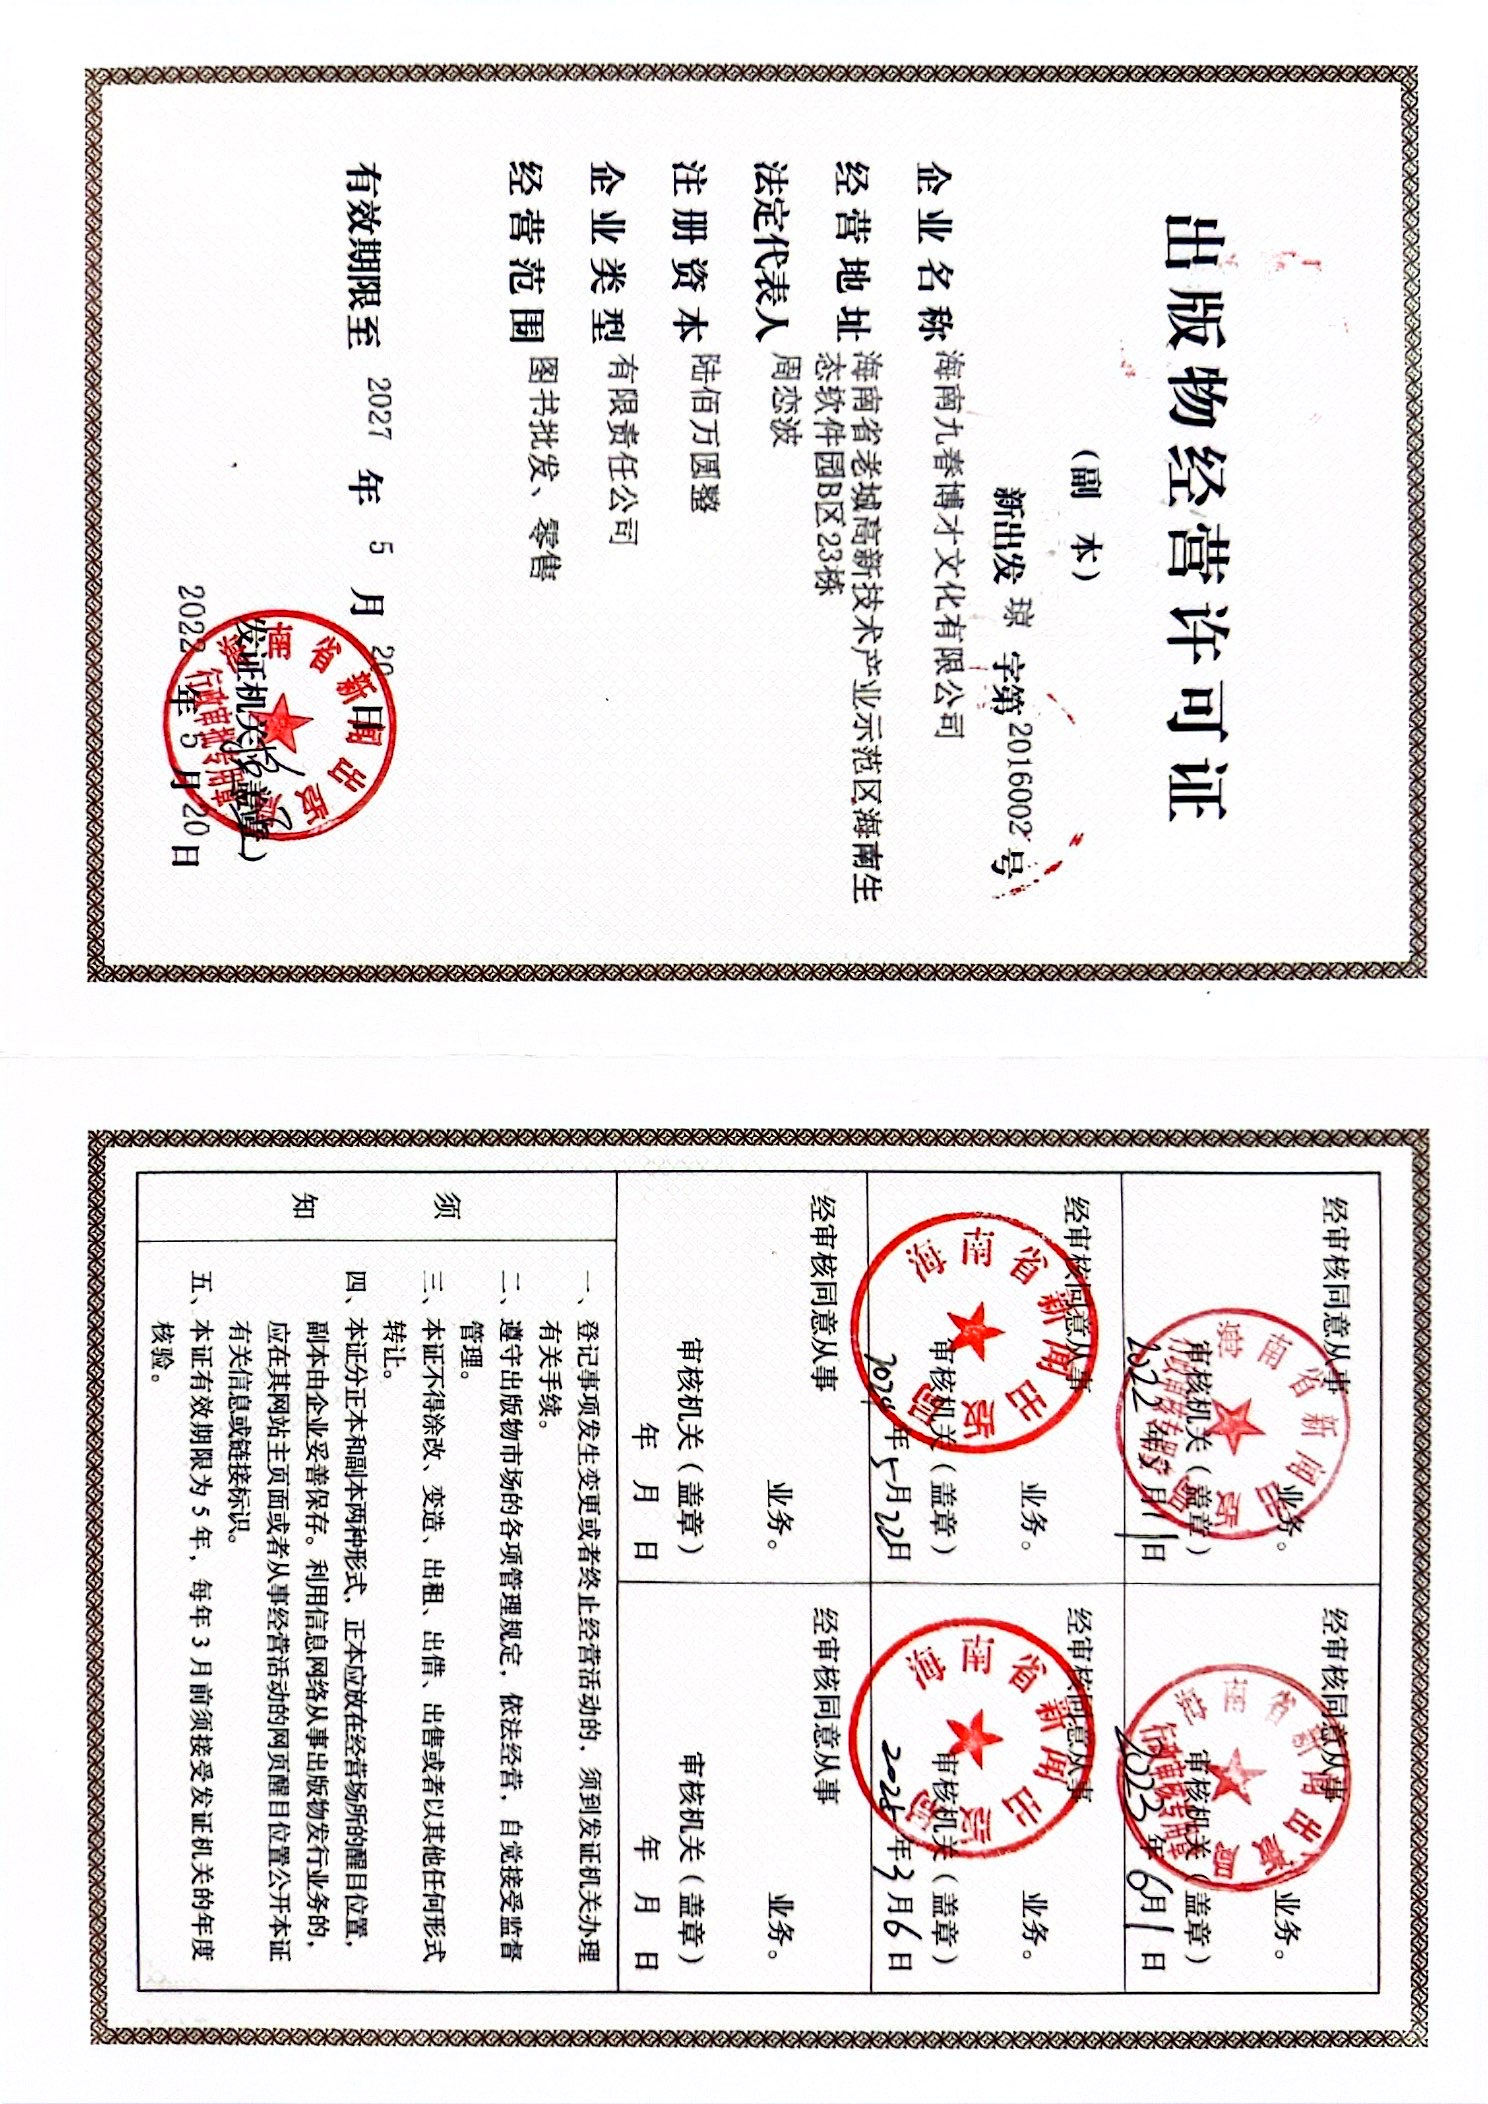 出版物经营许可证
（副 本）
新出发 琼 字第2016002号
企业名称 海南九春博才文化有限公司
经营地址 海南省老城高新技术产业示范区海南生
态软件园B区23栋
法定代表人 周恋波
注册资本 陆佰万圆整
企业类型 有限责任公司
经营范围 图书批发、零售
有效期限至 2027 年 5 月 20 日
发证机关（盖章）
2022 年 5 月 20 日
海南省新闻出版局
行政审批专用章
经审核同意从事
业务。
审核机关（盖章）
2022 年 月 11 日
海南省新闻出版局
经审核同意从事
业务。
审核机关（盖章）
2023 年 6 月 1 日
海南省新闻出版局
经审核同意从事
业务。
审核机关（盖章）
2024 年 5 月 22 日
海南省新闻出版局
经审核同意从事
业务。
审核机关（盖章）
年 3 月 6 日
海南省新闻出版局
经审核同意从事
业务。
审核机关（盖章）
年 月 日
经审核同意从事
业务。
审核机关（盖章）
年 月 日
须知
一、登记事项发生变更或者终止经营活动的，须到发证机关办理
有关手续。
二、遵守出版物市场的各项管理规定，依法经营，自觉接受监督
管理。
三、本证不得涂改、变造、出租、出借、出售或者以其他任何形式
转让。
四、本证分正本和副本两种形式，正本应放在经营场所的醒目位置，
副本由企业妥善保存。利用信息网络从事出版物发行业务的，
应在其网站主页面或者从事经营活动的网页醒目位置公开本证
有关信息或链接标识。
五、本证有效期限为 5 年，每年 3 月前须接受发证机关的年度
核验。